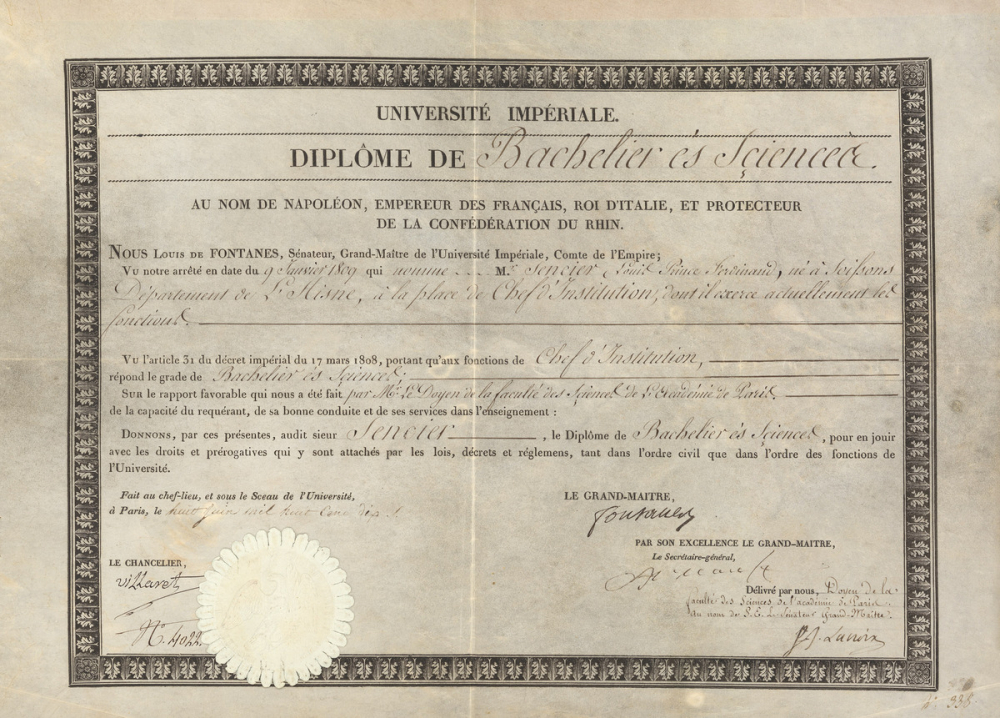 UNIVERSITÉ IMPÉRIALE.
DIPLÔME DE Bachelier ès Sciences.
AU NOM DE NAPOLÉON, EMPEREUR DES FRANÇAIS, ROI D'ITALIE, ET PROTECTEUR
DE LA CONFÉDÉRATION DU RHIN.
NOUS LOUIS DE FONTANES, Sénateur, Grand-Maître de l'Université Impériale, Comte de l'Empire;
VU notre arrêté en date du 9 Janvier 1809 qui nomme M.r Sencier Louis Prince Ferdinand, né à Soissons
Département de L'Aisne, à la place de Chef d'Institution, dont il exerce actuellement les
fonctions.
VU l'article 31 du décret impérial du 17 mars 1808, portant qu'aux fonctions de Chef d'Institution,
répond le grade de Bachelier ès Sciences;
SUR le rapport favorable qui nous a été fait par Mr. Le Doyen de la faculté des Sciences de L'Académie de Paris
de la capacité du requérant, de sa bonne conduite et de ses services dans l'enseignement :
DONNONS, par ces présentes, audit sieur Sencier, le Diplôme de Bachelier ès Sciences, pour en jouir
avec les droits et prérogatives qui y sont attachés par les lois, décrets et réglemens, tant dans l'ordre civil que dans l'ordre des fonctions de
l'Université.
Fait au chef-lieu, et sous le Sceau de l'Université,
à Paris, le huit juin mil huit cent dix
LE GRAND-MAITRE,
Fontanes
PAR SON EXCELLENCE LE GRAND-MAITRE,
Le Secrétaire-général,
LE CHANCELIER,
Villaret
Délivré par nous, Doyen de la
faculté des Sciences de l'académie de Paris
au nom de S. E. Le Sénateur Grand-Maître.
N.° 4022
S. F. Lacroix